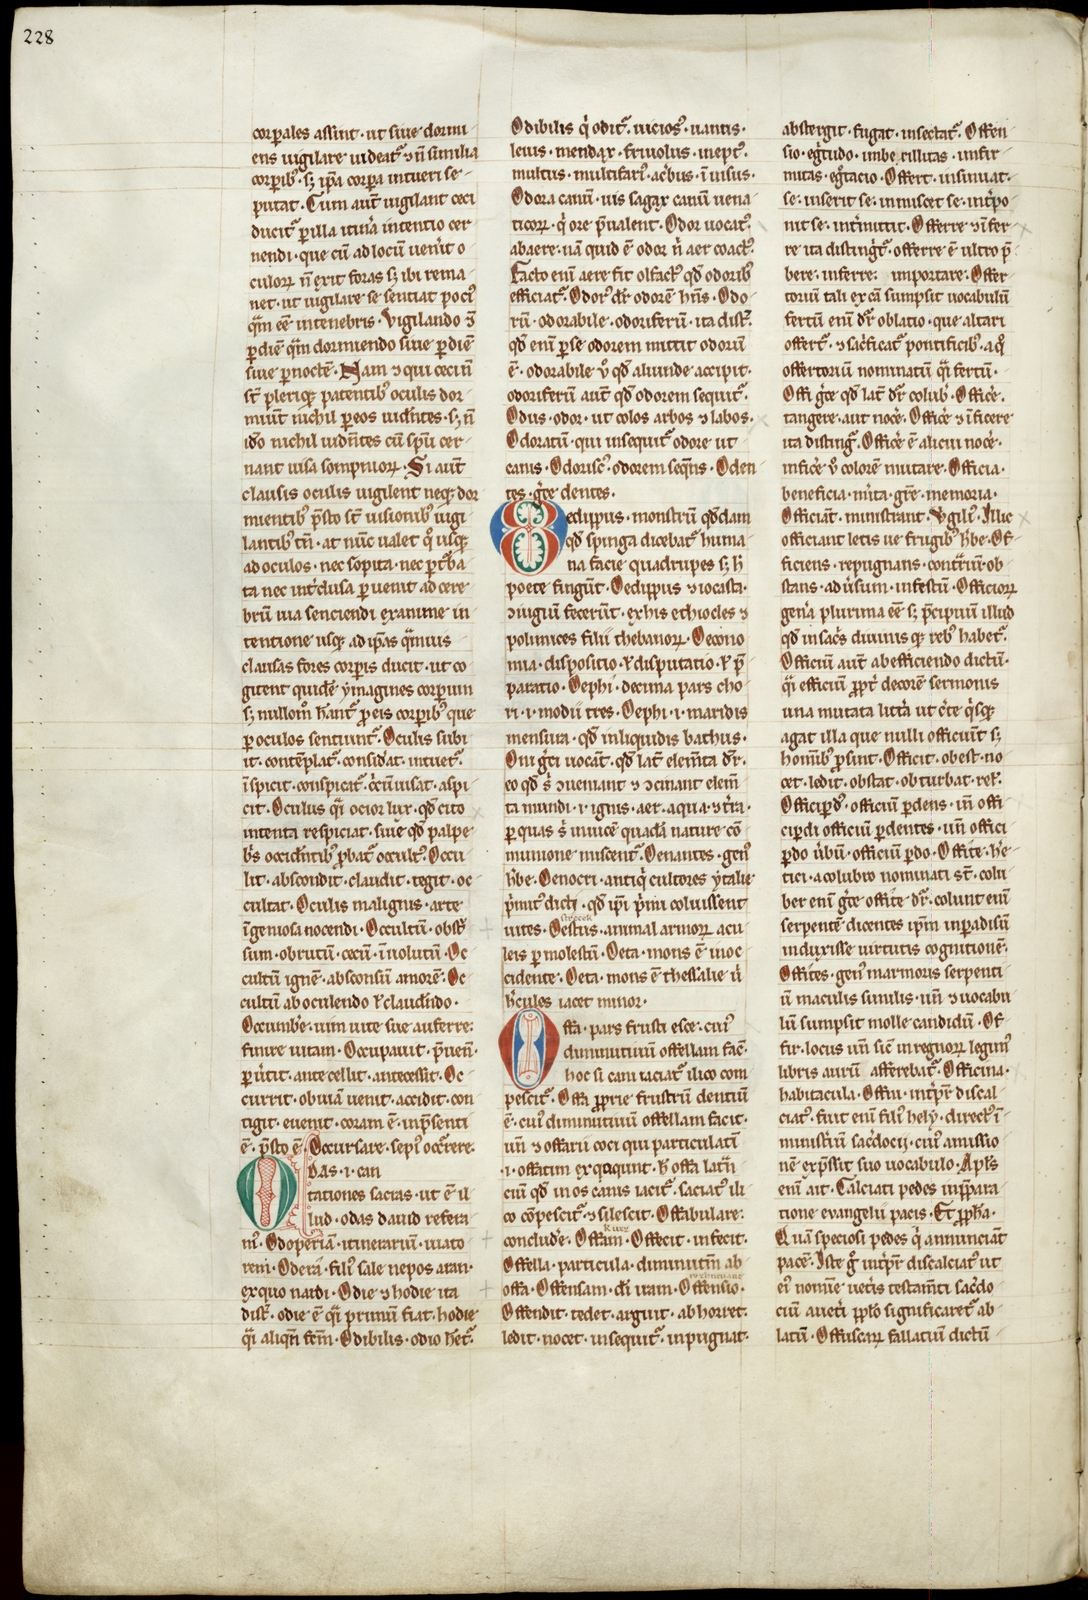 228
corꝑales assint · ut siue dormi
ens uigilare uideat᷑ ⁊ ñ similia
corꝑib; · sꝫ ip̃a corꝑa intueri se
putat · Cum aut̃ uigilant ceci
ducit᷑ ꝑ illa itin̾a intentio cer
nendi · que cũ ad locũ uen̾it o
culoꝝ ñ exit foras sꝫ ibi rema
net · ut uigilare se sentiat poci᷒
q̃m ẽẽ in tenebris · Vigilando ⁊
ꝑ diẽ q̃m dormiendo siue ꝑ diẽ
siue ꝑ noctẽ · Nam ⁊ qui ceci ñ
st̃ pleriq; patentib; oculis dor
miũt nichil ꝑ eos uidẽntes · sꝫ ñ
id̾o nichil uidñtes cũ sp̃u cer
nant uisa sompnioꝝ · Si aut̃
clausis oculis uigilent neq; dor
mientib; p̃sto st̃ uisionib; uigi
lantib; tñ · at nũc ualet qͦ usq;
ad oculos · nec sopita · nec ꝑt᷑ba
ta nec int̾clusa ꝑuenit ad cere
brũ uia senciendi examine in
tentione usq; ad ip̃as q̃muis
clausas fores corꝑis ducit · ut co
gitent quidẽ ymagines corꝑum
sꝫ nulloͫ h̃ant᷑ ꝓ eis corꝑib; que
ꝑ oculos sentiunt᷑ · Oculis subi
it · contẽplat᷑ · considat · intuet᷑ ·
ĩspicit · conspicat᷑ · c̾cũuisat · aspi
cit · Oculus q̃i ocior lux · qd̃ cito
intenta respiciat · siue qd̃ palpe
b̾s occid̃ntib; ꝓbat᷑ occult᷒ · Occu
lit · abscondit · claudit · tegit · oc
cultat · Oculis malignis · arte
ĩgeniosa nocendi · Occultũ · obsc̾
sum · obrutũ · cecũ · ĩuolutũ · Oc
cultũ ignẽ · absconsũ amorẽ · Oc
cultũ ab oculendo ł claudendo ·
Occumbe̾ · uim uite sue auferre ·
finire uitam · Occupauit · p̃uen̾ ·
ꝑ uẽtit · ante cellit · antecessit · Oc
currit · obuiã uenit · accidit · con
tigit · euenit · coram ẽ · in p̃senti
ẽ · p̃sto ẽ · Occursare · sepi᷒ occ᷑rere ·
Odas · i · can
tationes sacras · ut ẽ il
lud · odas dauid refera
m᷒ · Odoperiã · itinerariũ · uiato
rem · Oderã · fili᷒ sale nepos aran ·
ex quo nardi · Odie ⁊ hodie ita
dist̾ · odie ẽ q̃i primũ fiat · hodie
q̃i aliqñ fc̃m · Odibilis · odio hẽt᷑ ·
Odibilis q̾ odit᷑ · uicios᷒ · uantis ·
leuis · mendax · friuolus · inept᷒ ·
multus · multifari᷒ · ac̾bus · ĩuisus ·
Odora canũ · uis sagax canũ uena
ticoꝝ · q̾ ore p̃ualent · Odor uocat᷑
ab aere · nã quid ẽ odor n̾ aer coact᷒ ·
Tacto enĩ aere fit olfact᷒ qd̃ odorib;
efficiat᷑ · Odor᷒ dr̃ odorẽ hñs · Odo
rũ · odorabile · odoriferũ · ita dist᷑ ·
qd̃ enĩ ꝑ se odorem mittit odorũ
ẽ · odorabile u̾ qd̃ aliunde accipit ·
odoriferũ aut̃ qd̃ odorem sequit᷑ ·
Odus · odor · ut colos arbos ⁊ labos ·
Odoratũ · qui insequit᷑ odore ut
canis · Odorisc᷒ · odorem seq̃ns · Oden
tes · gc̃e dentes ·
Oedippus · monstrũ qd̃dam
qd̃ spinga dicebat᷑ huma
na facie quadrupes sꝫ h̾
poete fingũt · Oedippus ⁊ iocasta ·
ꝯiugiũ fecerũt · ex his ethiocles ⁊
polinices filii thebanoꝝ · Oecono
mia · dispositio · ł disputatio · ł p̃
paratio · Oephi · decima pars cho
ri · i · modii tres · Oephi · i · maridis
mensura · qd̃ in liquidis bathus ·
Oni gc̾i uocãt · qd̃ lat̃ elem̃ta dr̃ ·
eo qd̃ s̾ ꝯueniant ⁊ ꝯcinant elem̃
ta mundi · i · ignis · aer · aqua ⁊ t̾ra ·
ꝑ quas s̾ inuicẽ quadã nature cõ
munione miscent᷑ · Oenantes · gen᷒
h̾be · Oenocti · antiq̾ cultores ytalie
p̾mit᷒ dicti · qd̃ ip̃i p̾mi coluissent
uites · Oestrus · animal armoꝝ acu
leis ꝑ molestũ · Oeta · mons ẽ in oc
cidente · Oeta · mons ẽ thessalie u̾
h̾cules iacet minor ·
Offa · pars frusti esce · cui᷒
diminutiuũ offellam fac̃ ·
hoc si cani iaciat᷑ ilico com
pescit᷑ · Offa ꝓprie frustrũ dentiũ
ẽ · cui᷒ diminutiuũ offellam facit ·
uñ ⁊ offarii coci qui particulatĩ
· i · offatim ex coqunt · h̾ offa latr̃
ciũ qd̃ in os canis iacit᷑ · saciat᷒ ili
co cõpescit᷑ ⁊ silescit · Offabulare ·
conclude̾ · Offam · Offecit · infecit ·
Offella · particula · diminutiũ ab
offa · Offensam · di᷒ iram · Offensio ·
Offendit · tedet · arguit · ab horret ·
ledit · nocet · insequit᷑ · inpugnat ·
abstergit · fugat · insectat᷑ · Offen
sio · eg̾tudo · imbecillitas · infir
mitas · eg̾tacio · Offert · insinuat ·
se · inserit se · inmiscet se · int̾po
nit se · int̾mittit · Offerre ⁊ ĩfer
re ita distingt᷑ · offerre ẽ ultro p̃
bere · inferre · importare · Offer
toriũ tali ex cã sumpsit uocabulũ
fertũ enĩ dr̃ oblatio · que altari
offert᷑ · ⁊ sac̾ficat᷑ pontificib; · a q̾
offertoriũ nominatũ q̃i fertũ ·
Offi gc̃e qd̃ lat̃ dr̃ colub̾ · Office̾ ·
tangere · aut noce̾ · Office̾ ⁊ ĩficere
ita disting᷑ · Office̾ ẽ alicui noce̾ ·
infice̾ u̾ colorẽ mutare · Officia ·
beneficia · m̾ita · gr̃e · memoria ·
Officiãt · ministrant · Vgil᷒ · Illic
officiant letis ue frugib; h̾be · Of
ficiens · repugnans · cont̾riũ · ob
stans · ad u̾sum · infestũ · Officioꝝ
gen̾a plurima ẽẽ sꝫ p̾cipuũ illud
qd̃ in sac̾s diuinis q; reb; habet᷑ ·
Officiũ aut̃ ab efficiendo dictũ ·
q̃i efficiũ ꝓpt̾ decorẽ sermonis
una mutata litt̾a ut c̾te q̾sq;
agat illa que nulli officiũt sꝫ
hom̃ib; ꝓsunt · Officit · obest · no
cet · ledit · obstat · obturbat · rel̃ ·
Officiꝑd᷒ · officiũ ꝑdens · iñ offi
ciꝑdi officiũ ꝑdentes · uñ offici
ꝑdo u̾bũ · officiũ ꝑdo · Offite · h̾e
tici · a colubro nominati st̃ · colu
ber enĩ gc̃e offite dr̃ · colunt enĩ
serpentẽ dicentes ip̃m in paradisũ
induxisse uirtutis cognitionẽ ·
Offites · gen᷒ marmoris serpenti
ũ maculis similis · uñ ⁊ uocabu
lũ sumpsit molle candidũ · Of
fir · locus uñ sic̃ in regnoꝝ legim᷒
libris aurũ afferebat᷑ · Officina ·
habitacula · Offin · int̾pr̃ discal
ciat᷒ · fuit enĩ fili᷒ hely · direct᷒ ĩ
ministeriũ sac̾docij · cui᷒ amissio
nẽ exp̃ssit suo uocabulo · Apl̃s
enĩ ait · Calciati pedes in p̃para
tione evangelii pacis · Et ꝓph̃a ·
Quã speciosi pedes q̾ annunciãt
pacẽ · Iste g̾ int̾pr̃ discalciat᷒ ut
ei᷒ nomine uet̾is testam̃ti sac̾do
ciũ auc̃ti ꝓplo significaret᷑ ab
latũ · Offuscaꝝ fallatiũ dictũ